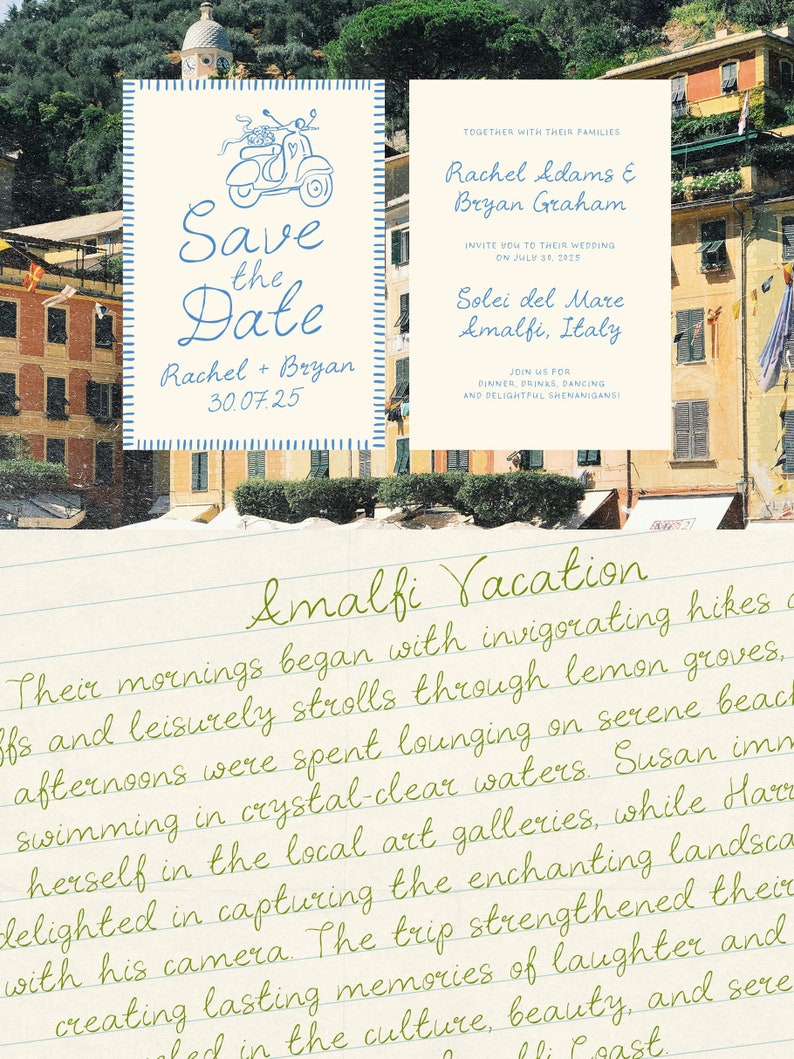 Save
the
Date
Rachel + Bryan
30.07.25
TOGETHER WITH THEIR FAMILIES
Rachel Adams &
Bryan Graham
INVITE YOU TO THEIR WEDDING
ON JULY 30, 2025
Solei del Mare
Amalfi, Italy
JOIN US FOR
DINNER, DRINKS, DANCING
AND DELIGHTFUL SHENANIGANS!
Amalfi Vacation
Their mornings began with invigorating hikes
ffs and leisurely strolls through lemon groves,
afternoons were spent lounging on serene beach
swimming in crystal-clear waters. Susan imm
herself in the local art galleries, while Harr
delighted in capturing the enchanting landsca
with his camera. The trip strengthened their
creating lasting memories of laughter and
in the culture, beauty, and sere
Coast.